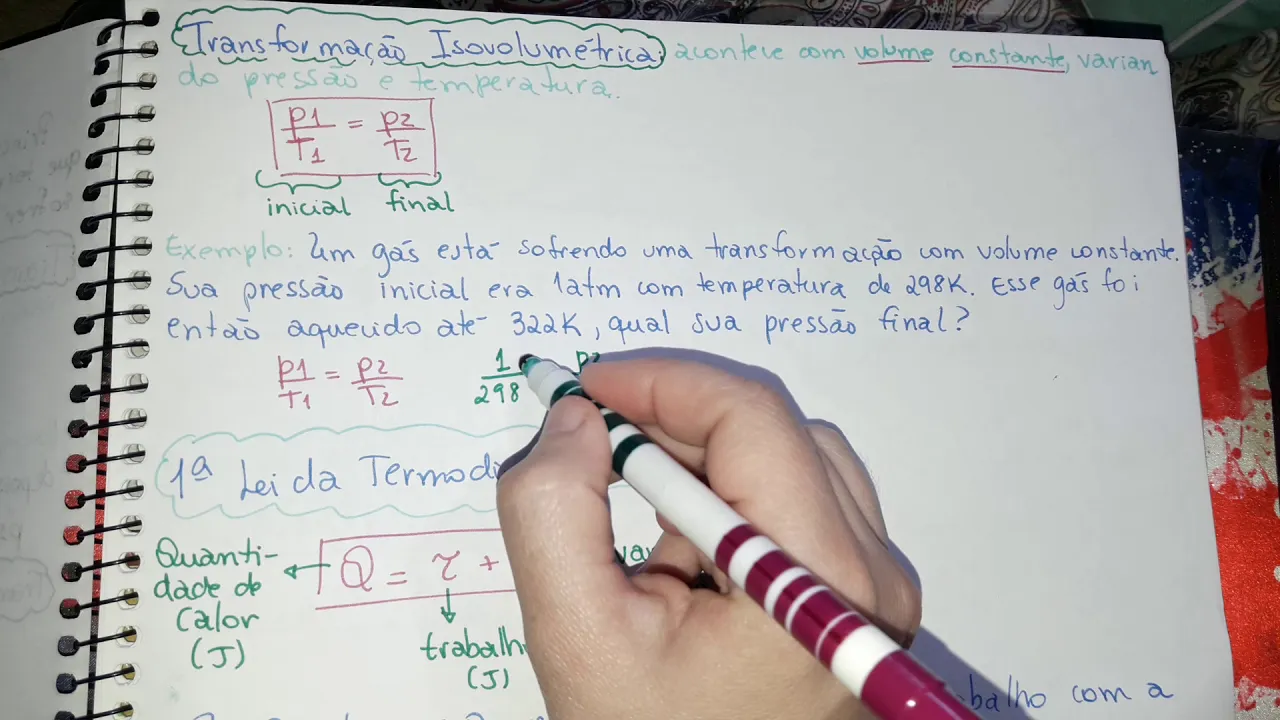 Transformação Isovolumétrica acontece com volume constante, varian
do pressão e temperatura.
p1 = p2
T1 T2
inicial final
Exemplo: Um gás está sofrendo uma transformação com volume constante.
Sua pressão inicial era 1atm com temperatura de 298K. Esse gás foi
então aquecido até 322K, qual sua pressão final?
p1 = p2 1 p2
T1 T2 298
1ª Lei da
Quanti-
dade de
Calor
(J)
Q = τ +
(J)
com a